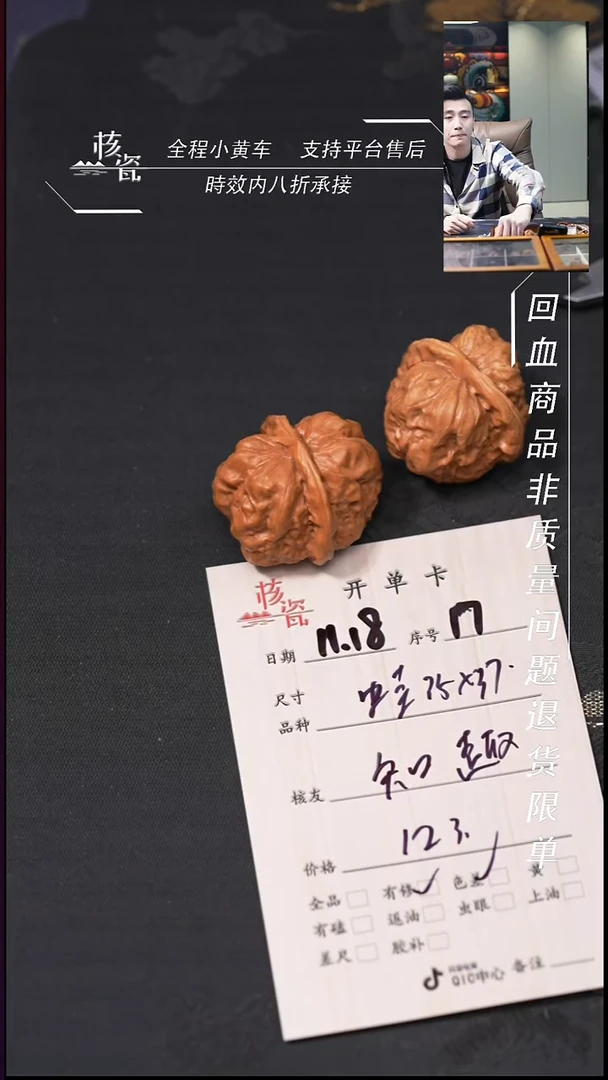 核瓷
全程小黄车 支持平台售后
時效内八折承接
回血商品非质量问题退货限单
核瓷 开单卡
日期 11.18 序号 17
尺寸
品种 蛙 35×37.
核友 知趣
价格 123.
全品 有修 ✓ 色差 ✓ 黄
有磕 退油 虫眼 上油
差尺 胶补
QIC中心 备注